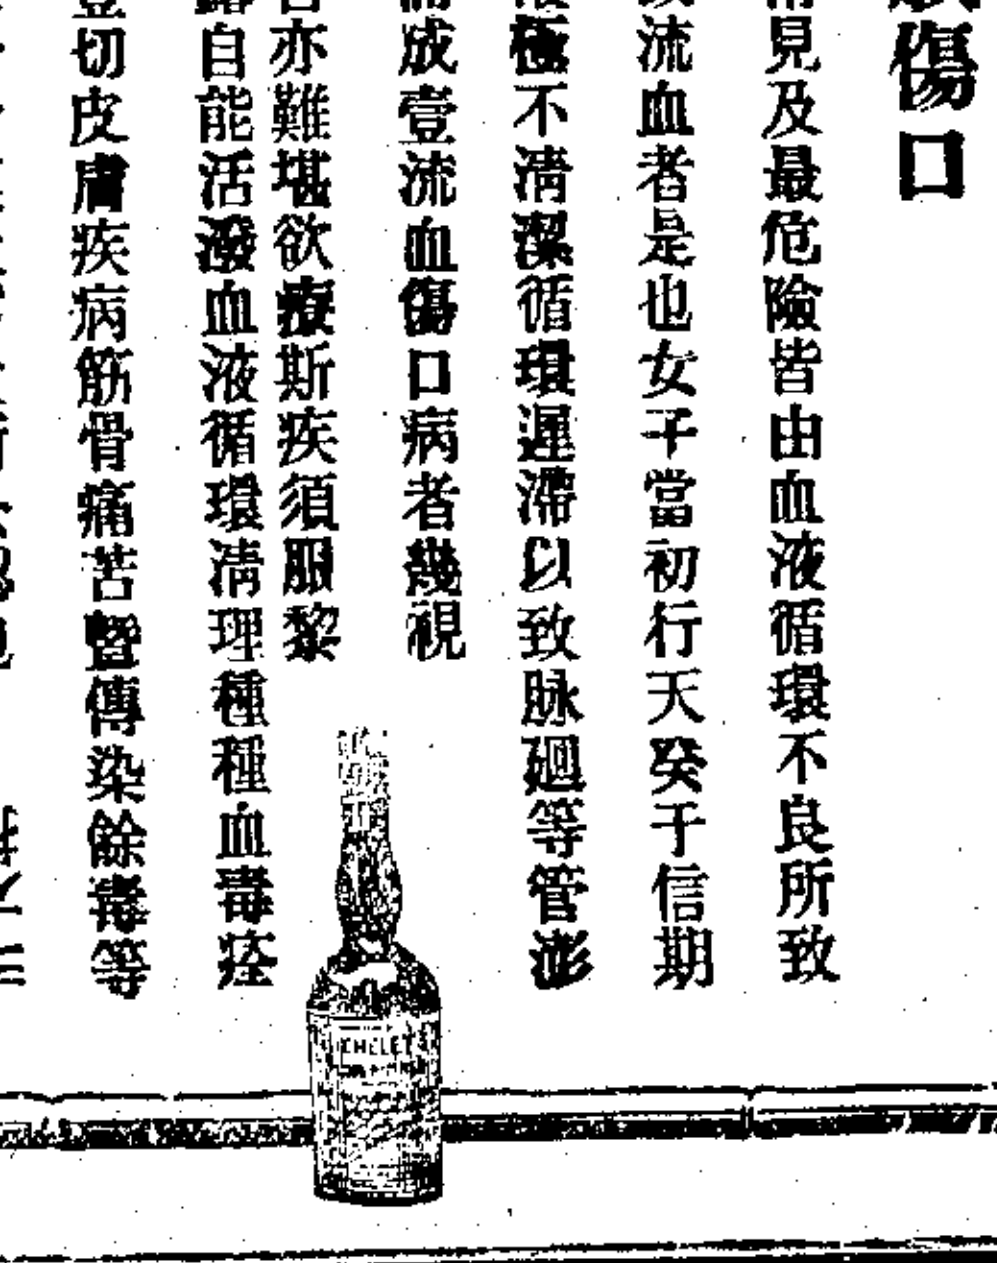 傷口
見及最危險皆由血液循環不良所致
流血者是也女子當初行天癸于信期
極不清潔循環遲滯以致脉廻等管澎
成壹流血傷口病者幾視
亦難堪欲療斯疾須服黎
自能活潑血液循環清理種種血毒痊
切皮膚疾病筋骨痛苦暨傳染餘毒等